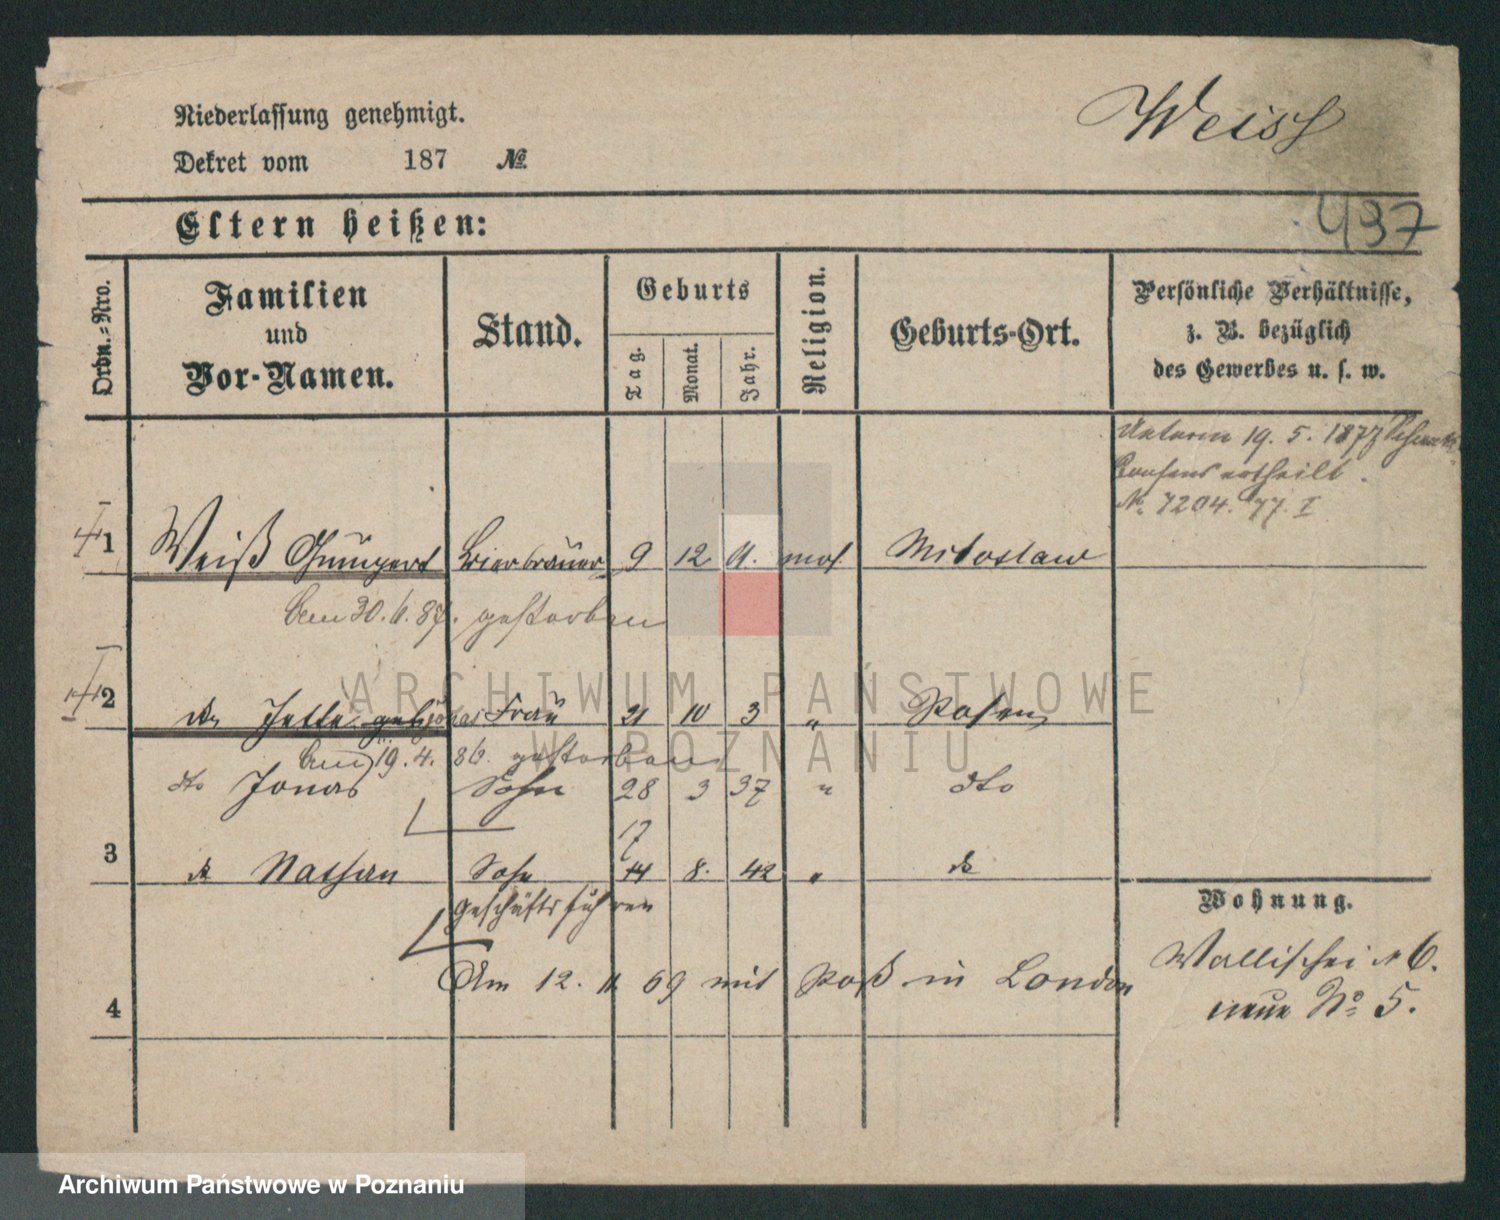 Niederlassung genehmigt.
Weiss
Dekret vom 187 №
Eltern heißen:
437
Ordn.=Nro.
Familien und Vor-Namen.
Stand.
Geburts
Tag.
Monat.
Jahr.
Religion.
Geburts-Ort.
Persönliche Verhältnisse,
z. B. bezüglich
des Gewerbes u. s. w.
Unterm 19. 5. 1877
Consens ertheilt.
No. 7204. 77. I
1 Weiß Gumpert Bierbrauer 9 12 11. mos. Miloslaw
Am 30. 6. 87. gestorben
2 do Jette geb. Jonas Frau 21 10 3 " Posen
Am 19. 4. 86. gestorben
dto Jonas Sohn 28 3 37 " dto
17
3 do Nathan Sohn 14 8. 42 " do
Geschäftsführer
Wohnung.
Am 12. 11 69 mit Paß in London
Wallischei № 6.
neue No 5.
4
ARCHIWUM PAŃSTWOWE
W POZNANIU
Archiwum Państwowe w Poznaniu